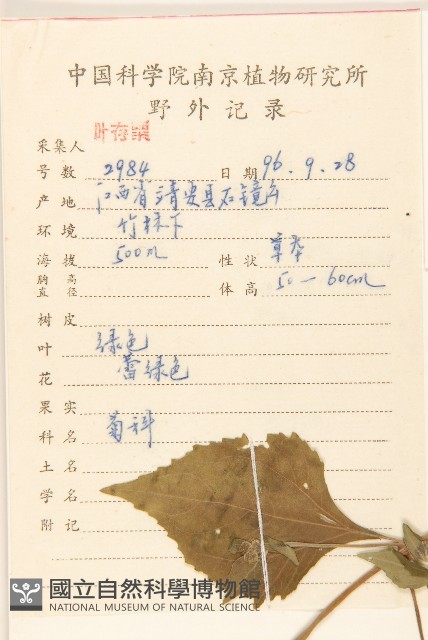 中国科学院南京植物研究所
野外记录
采集人 叶存粟
号数 2984 日期 96.9.28
产地 江西省靖安县石镜
环境 竹林下
海拔 500m 性状 草本
胸高直径 体高 50—60cm
树皮
叶 绿色
花 蕾绿色
果实
科名 菊科
土名
学名
附记
國立自然科學博物館
NATIONAL MUSEUM OF NATURAL SCIENCE